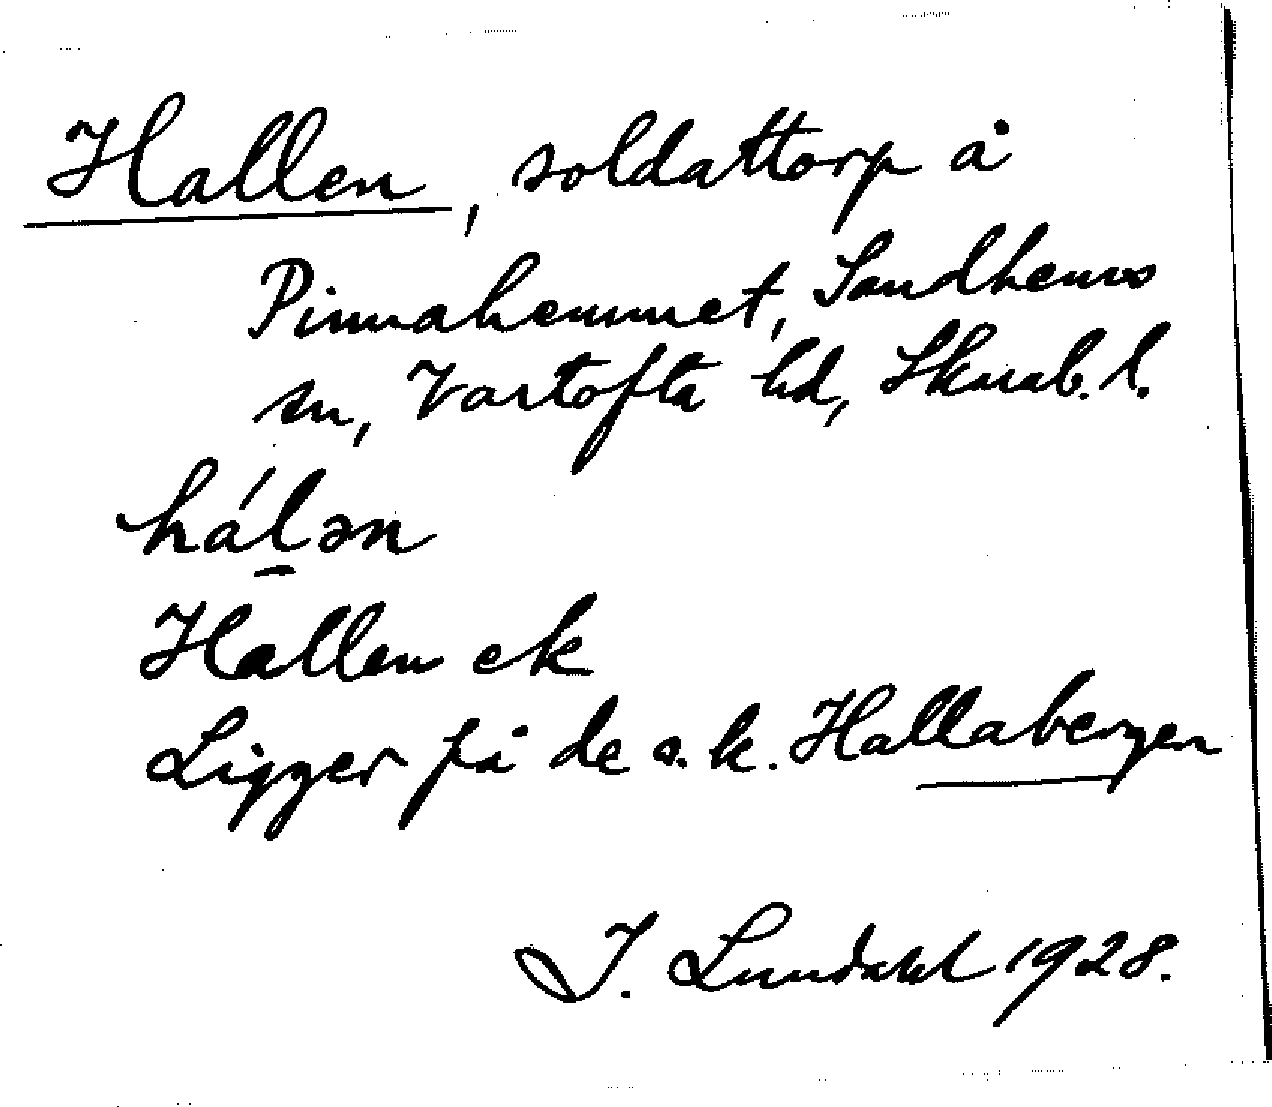 Hallen, soldattorp å
Pinnahemmet, Sandhems
sn, Vartofta hd, Skarab. l.
há́l̠ən
Hallen ek
Ligger på de s.k. Hallabergen
I. Lundahl 1928.